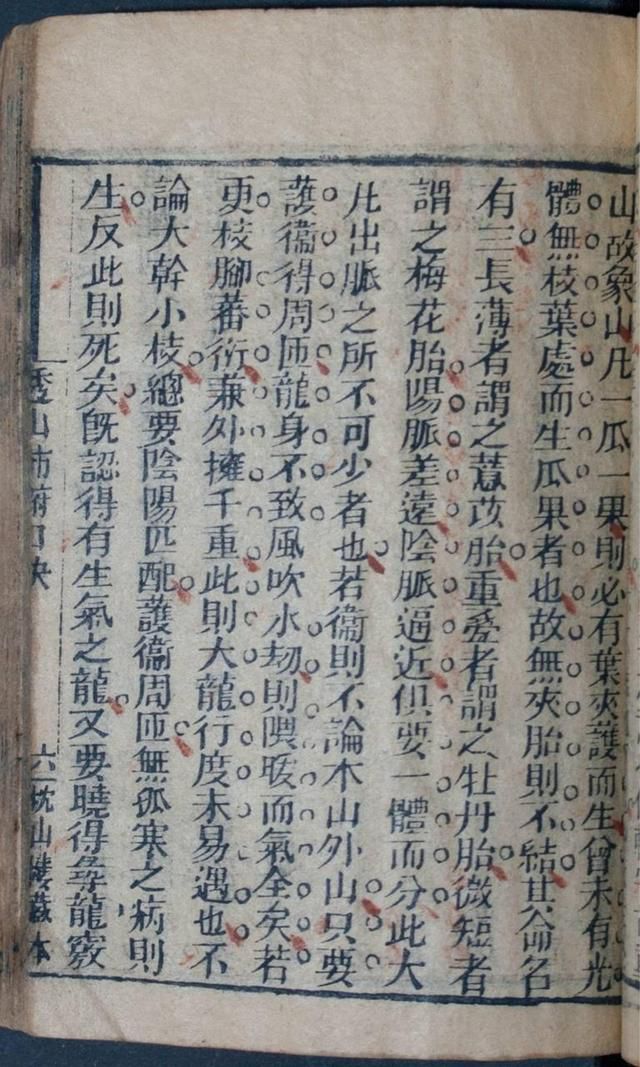 山故象山凡一瓜一果則必有葉夾護而生曾未有光
體無枝葉處而生瓜果者也故無夾胎則不結其命名
有三長薄者謂之薏苡胎重疊者謂之牡丹胎微短者
謂之梅花胎陽脈差遠陰脈逼近俱要一體而分此大
凡出脈之所不可少者也若衞則不論本山外山只要
護衞得周匝龍身不致風吹水刼則隈暖而氣全矣若
更枝腳蕃衍兼外擁千重此則大龍行度未易遇也不
論大幹小枝總要陰陽匹配護衞周匝無孤寒之病則
生反此則死矣旣認得有生氣之龍又要曉得尋龍竅
山 口訣
六
枕山樓藏本